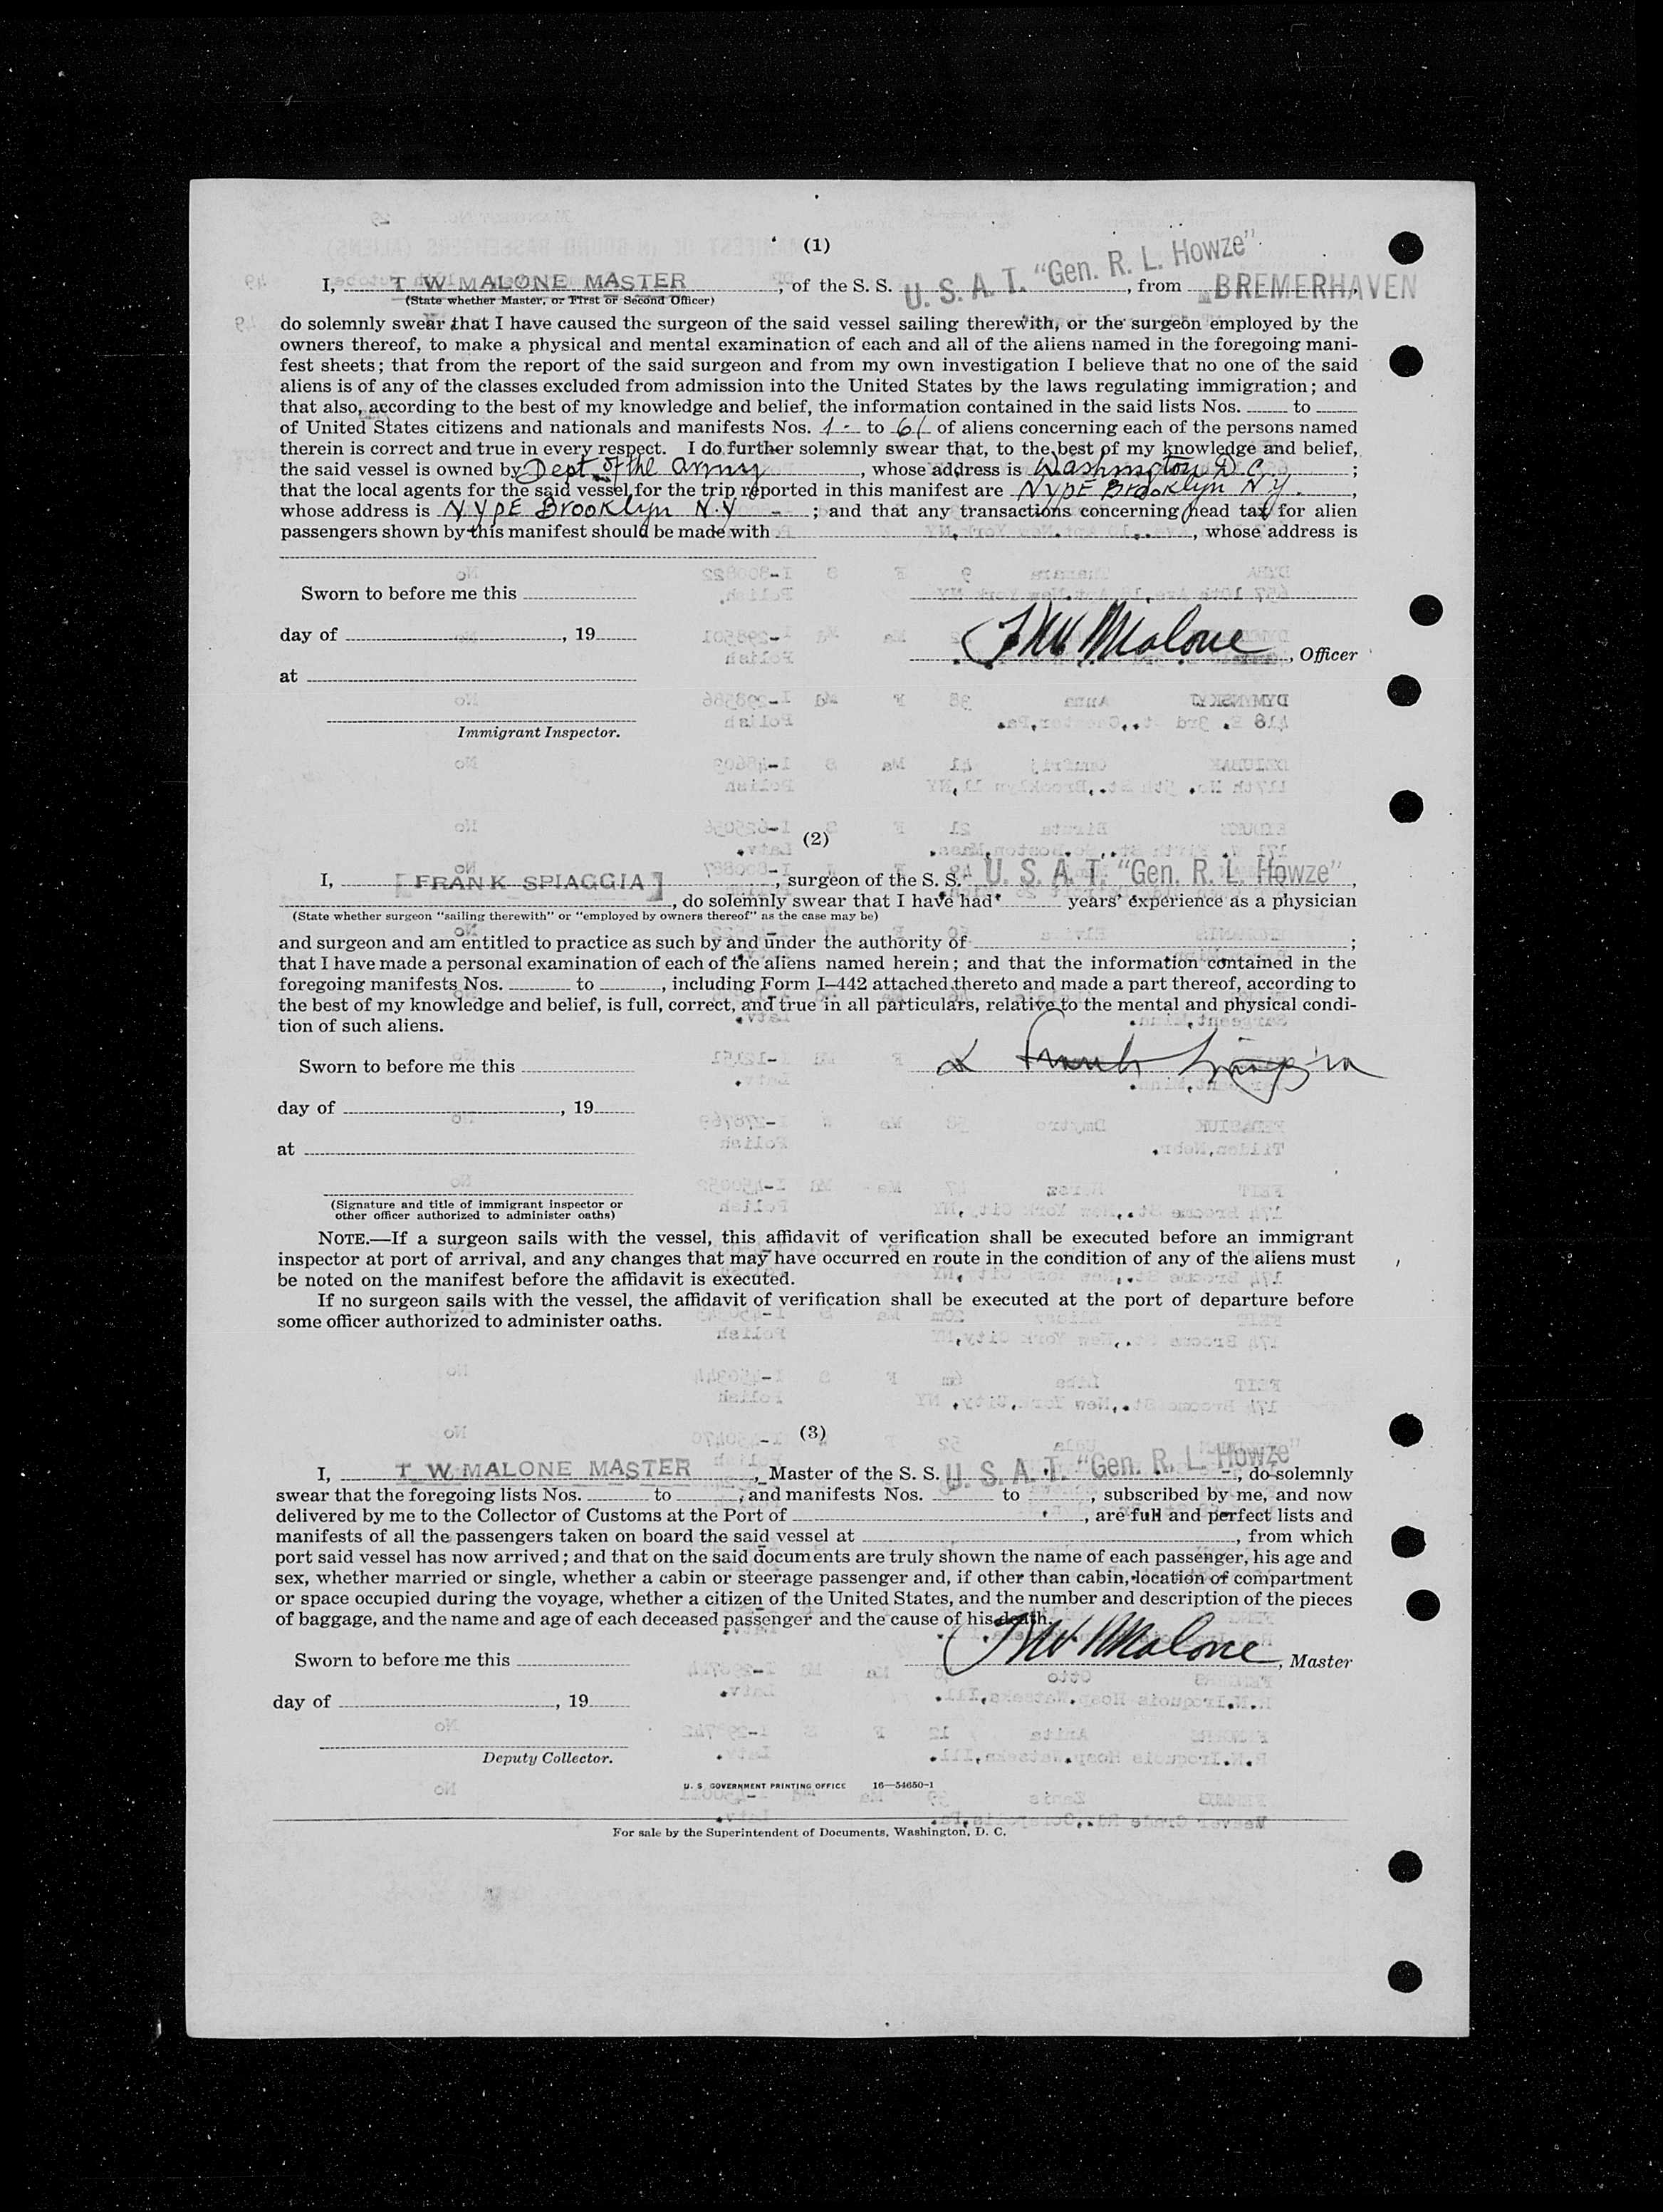 (1)
I, T W MALONE MASTER, of the S. S. U. S. A. T. "Gen. R. L. Howze", from BREMERHAVEN,
(State whether Master, or First or Second Officer)
do solemnly swear that I have caused the surgeon of the said vessel sailing therewith, or the surgeon employed by the
owners thereof, to make a physical and mental examination of each and all of the aliens named in the foregoing mani-
fest sheets; that from the report of the said surgeon and from my own investigation I believe that no one of the said
aliens is of any of the classes excluded from admission into the United States by the laws regulating immigration; and
that also, according to the best of my knowledge and belief, the information contained in the said lists Nos. to
of United States citizens and nationals and manifests Nos. 1- to 61 of aliens concerning each of the persons named
therein is correct and true in every respect. I do further solemnly swear that, to the best of my knowledge and belief,
the said vessel is owned by Dept. of the Army, whose address is Washington D.C.;
that the local agents for the said vessel for the trip reported in this manifest are NYPE Brooklyn N.Y.,
whose address is NYPE Brooklyn N.Y; and that any transactions concerning head tax for alien
passengers shown by this manifest should be made with, whose address is
Sworn to before me this
day of, 19
TW Malone, Officer
at
Immigrant Inspector.
(2)
I, [FRANK SPIAGGIA], surgeon of the S. S. U. S. A. T. "Gen. R. L. Howze",
, do solemnly swear that I have had years' experience as a physician
(State whether surgeon "sailing therewith" or "employed by owners thereof" as the case may be)
and surgeon and am entitled to practice as such by and under the authority of;
that I have made a personal examination of each of the aliens named herein; and that the information contained in the
foregoing manifests Nos. to, including Form I–442 attached thereto and made a part thereof, according to
the best of my knowledge and belief, is full, correct, and true in all particulars, relative to the mental and physical condi-
tion of such aliens.
Sworn to before me this
day of, 19
at
(Signature and title of immigrant inspector or
other officer authorized to administer oaths)
NOTE.—If a surgeon sails with the vessel, this affidavit of verification shall be executed before an immigrant
inspector at port of arrival, and any changes that may have occurred en route in the condition of any of the aliens must
be noted on the manifest before the affidavit is executed.
If no surgeon sails with the vessel, the affidavit of verification shall be executed at the port of departure before
some officer authorized to administer oaths.
(3)
I, T W MALONE MASTER, Master of the S. S. U. S. A. T. "Gen. R. L. Howze", do solemnly
swear that the foregoing lists Nos. to, and manifests Nos. to, subscribed by me, and now
delivered by me to the Collector of Customs at the Port of, are full and perfect lists and
manifests of all the passengers taken on board the said vessel at, from which
port said vessel has now arrived; and that on the said documents are truly shown the name of each passenger, his age and
sex, whether married or single, whether a cabin or steerage passenger and, if other than cabin, location of compartment
or space occupied during the voyage, whether a citizen of the United States, and the number and description of the pieces
of baggage, and the name and age of each deceased passenger and the cause of his death.
Sworn to before me this
TW Malone, Master
day of, 19
Deputy Collector.
U. S. GOVERNMENT PRINTING OFFICE 16—54650-1
For sale by the Superintendent of Documents, Washington, D. C.